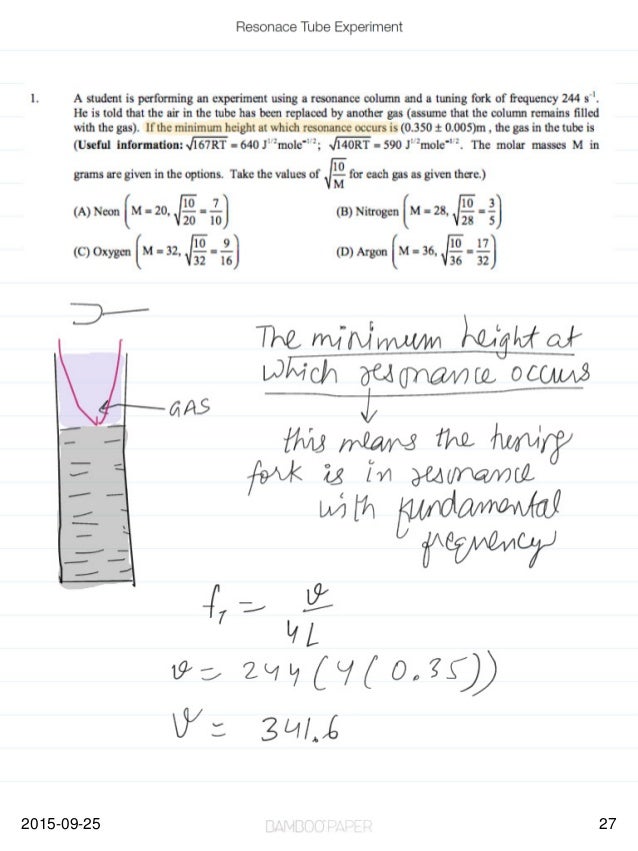 Resonace Tube Experiment
1. A student is performing an experiment using a resonance column and a tuning fork of frequency 244 s⁻¹.
He is told that the air in the tube has been replaced by another gas (assume that the column remains filled
with the gas). If the minimum height at which resonance occurs is (0.350 ± 0.005)m , the gas in the tube is
(Useful information: √167RT = 640 J^1/2 mole^-1/2; √140RT = 590 J^1/2 mole^-1/2. The molar masses M in
grams are given in the options. Take the values of √(10/M) for each gas as given there.)
(A) Neon (M = 20, √(10/20) = 7/10) (B) Nitrogen (M = 28, √(10/28) = 3/5)
(C) Oxygen (M = 32, √(10/32) = 9/16) (D) Argon (M = 36, √(10/36) = 17/32)
The minimum height at
which resonance occurs
GAS
this means the tuning
fork is in resonance
with fundamental
frequency
f₁ = v/4L
v = 244 (4(0.35))
v = 341.6
2015-09-25 BAMBOO PAPER 27